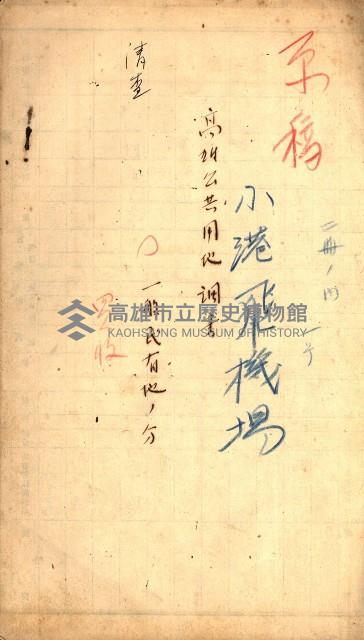 原稿
二冊ノ内
一号
小港飛機場
高雄公共用地調書
一般民有地ノ分
清查
高雄市立歷史博物館
KAOHSIUNG MUSEUM OF HISTORY